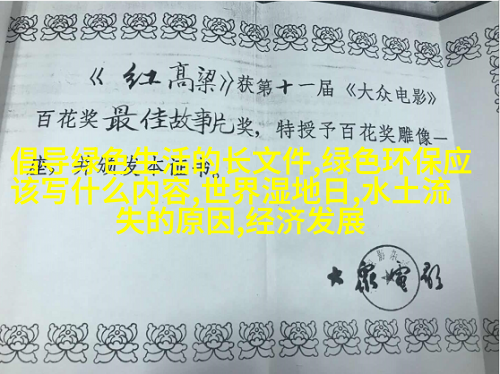 《红高粱》获第十一届《大众电影》
百花奖最佳故事片奖，特授予百花奖雕像一
座，并颁发本证书。
倡导绿色生活的长文件,绿色环保应
该写什么内容,世界湿地日,水土流
失的原因,经济发展
大众电影